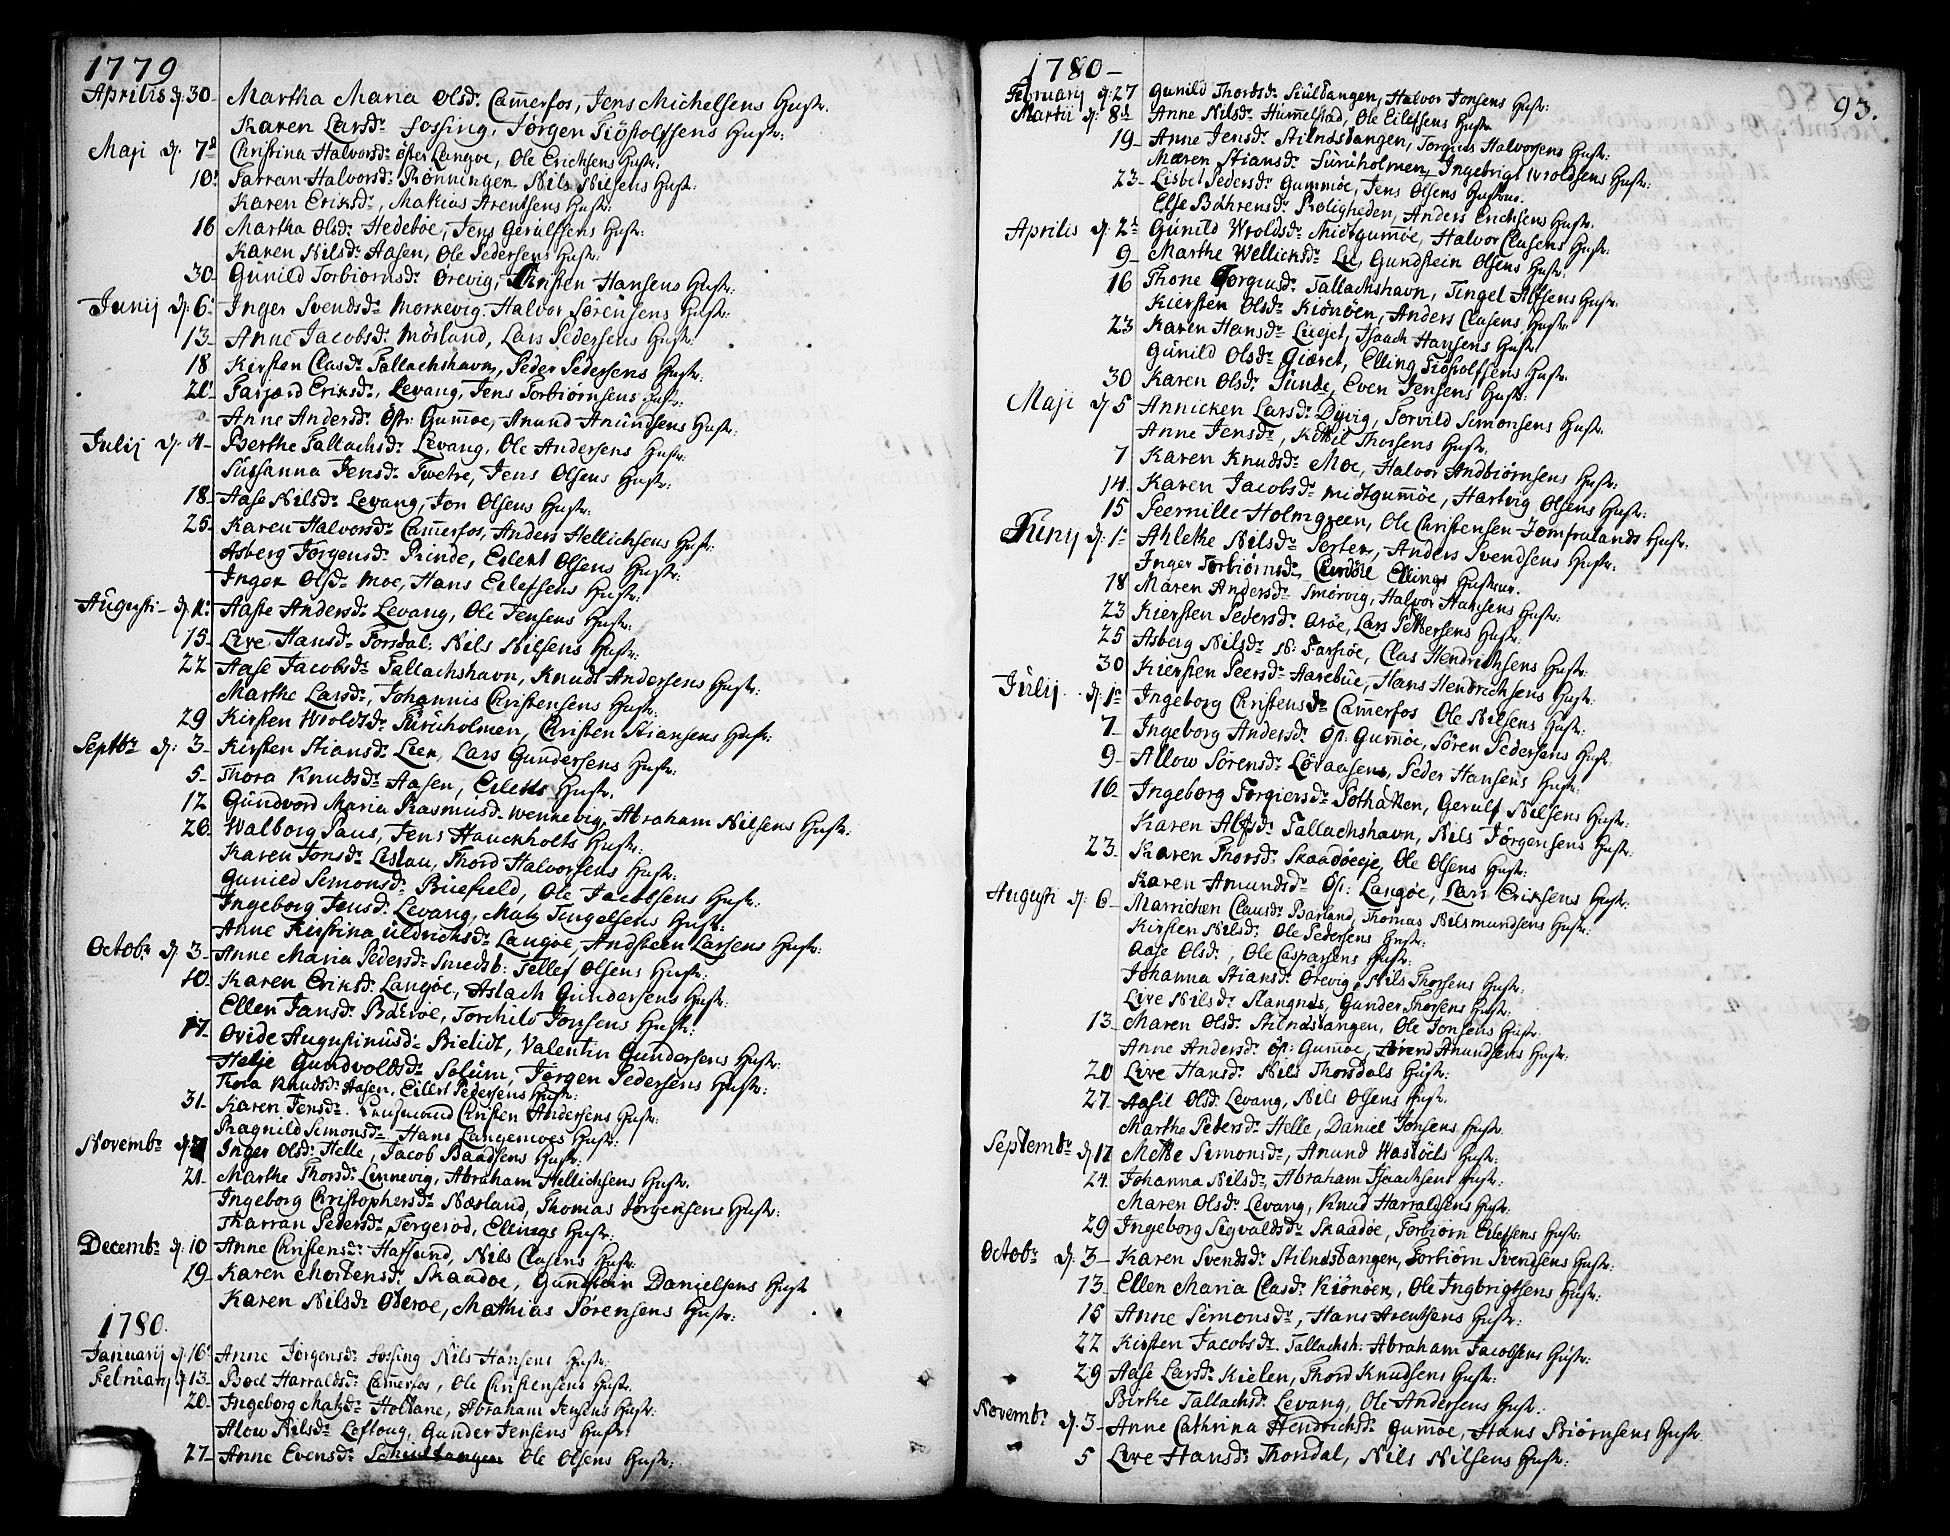 1779
Aprilis d: 30 Martha Maria Olsdr Camerfos, Jens Michelsens Hustr:
Karen Larsdr Fossing, Jørgen Tiøstolfsens Hustr:
Maji d. 7de Christina Halvorsdr Øster Langøe, Ole Erichsens Hustr.
10 Tarran Halvorsdr Rønningen Nils Nilsens Hustr:
Karen Eriksdr, Mathias Arentsens Hustr:
16 Martha Olsdr Hedebøe, Jens Gerulfsens Hustr:
Karen Nilsdr Aasen, Ole Pedersens Hustr:
30 Gunild Torbiørnsdr Ørevig, Christen Hansens Hustr:
Junij d: 6 Inger Svendsdr Morkevig. Halvor Sørensens Hustr:
13 Anne Jacobsdr Mørland, Lars Pedersens Hustr:
18 Kirsten Clasdr Tallachshavn, Peder Pedersens Hustr:
21 Tarjærd Eriksdr, Levang, Jens Torbiørnsens Hustr:
Anne Andersdr Østr: Gumøe, Anund Anundsens Hustr:
Julij d. 4 Berthe Tallachsdr Levang, Ole Andersens Hustr:
Susanna Jensdr Tvetre, Jens Olsens Hustr:
18 Aase Nilsdr Levang, Jon Olsens Hustr:
25 Karen Halvorsdr Camerfos, Anders Hellichsens Hustr:
Asberg Jørgensdr Rinde, Eilert Olsens Hustr:
Inger Olsdr Moe, Hans Eilefsens Hustr:
Augusti d. 1 Aaste Andersdr Levang, Ole Jensens Hustr:
15 Live Hansdr Torsdal: Nils Nilsens Hustr:
22 Aase Jacobsdr Tallachshavn, Knudt Andersens Hustr:
Marthe Larsdr, Johannis Christensens Hustr:
29 Kirsten Wroldsdr Furuholmen, Christen Stiansens Hustr:
Septbr d: 3 Kirsten Stiansdr Lien, Lars Gundersens Hustr:
5 Thora Knudsdr Aasen, Eilerts Hustr.
12 Gundvord Maria Rasmusdr Wennevig, Abraham Nilsens Hustr:
26 Walborg Paus, Jens Hauckholts Hustr:
Karen Jonsdr Lislau, Thord Halvorsens Hustr:
Gunild Semonsdr Buefield, Ole Jacobsens Hustr:
Ingeborg Jensdr Levang, Matz Tingelsens Hustr:
Anne Kirstina Uldrichsdr Langøe, Andsteen Larsens Hustr:
Octobr d. 3 Anne Maria Pedersdr Smedsb: Tellef Olsens Hustr:
10 Karen Eriksdr Langøe, Aslach Gundersens Hustr:
Ellen Jansdr Barøe, Torchild Jonsens Hustr:
17 Ovide Augustinusdr Bielidt, Valentin Gundersens Hustr:
Helje Gundvoldsdr Solum, Jørgen Pedersens Hustr:
Thora Knudsdr Aasen, Eilert Pedersens Hustr:
31 Karen Jensdr Christen Andersens Hustr:
Ragnild Semonsdr Hans Langemoes Hustr:
Novembr d. Inger Olsdr Helle, Jacob Baadsens Hustr:
21 Marthe Thorsdr Lennevig, Abraham Hellichsens Hustr.
Ingeborg Christophersdr Næsland, Thomas Jørgensens Hustr:
Tharran Pedersdr Torgerød, Ellings Hustr:
Decembr d: 10 Anne Christensdr Hafsund, Nils Clasens Hustr:
19 Karen Mortensdr Skaadøe, Gundstein Danielsens Hustr
Karen Nilsdr Oterøe, Mathias Sørensens Hustr:
1780
Januarij d. 16 Anne Jørgensdr Fossing Nils Hansens Hustr:
Februarij d 13 Boel Harraldsdr Camerfos, Ole Christensens Hustr.
20 Ingeborg Matzdr Holtane, Abraham Jensens Hustr:
Alow Nilsdr Leftoug, Gunder Jensens Hustr:
27 Anne Evensdr Schiultangen Ole Olsens Hustr:
1780
93.
Februarij d: 27 Gunild Thordsdr Skiultangen, Halvor Jonsens Hustr:
Martii d: 8de Anne Nilsdr Hummelstad, Ole Eilefsens Hustr
19 Anne Jensdr Stilndstangen, Torgius Halvorsens Hustr:
Maren Stiansdr Furuholmen, Ingebrigt Wroldsens Hustr:
23 Lisbet Pedersdr Gummøe, Jens Olsens Hustrue.
Else Bahrensdr Roligheden, Anders Erichsens Hustr:
Aprilis d: 2de Gunild Wroldsdr Midtgumøe, Halvor Clasens Hustr:
9 Marthe Wellichsdr Lie, Gundstein Olsens Hustr:
16 Thone Torgiusdr Tallachshavn, Tingel Alfsens Hustr:
Kiersten Olsdr Kiønøen, Anders Clasens Hustr
23 Karen Hansdr Lueget, Isaach Hansens Hustr
Gunild Olsdr Giæret, Elling Tiøstolfsens Hustr.
30 Karen Olsdr Tunde, Even Jensens Hustr:
Maji d 5 Annichen Larsdr Dyvig, Torvild Simonsens Hustr.
Anne Jensdr, Kittil Thorsens Hustr:
7 Karen Knudsdr Moe, Halvor Andbiørnsens Hustr:
14 Karen Jacobsdr Midtgumøe, Hartvig Olsens Hustr:
15 Peernille Holmgreen, Ole Christensen Jomfrulands Hustr:
Junij d: 1 Ahlethe Nilsdr Porter, Anders Svendsens Hustr:
Inger Torbiørnsdr Ellings Hustrue.
18 Maren Andersdr Smørvig, Halvor Hansens Hustr:
23 Kiersten Pedersdr Arøe, Lars Pettersens Hustr:
25 Asberg Nilsdr N: Farsiøe, Clas Hendrichsens Hustr:
30 Kiersten Peersdr Harebue, Hans Hendrichsens Hustr:
Julij d: 1 Ingeborg Christensdr Camerfos Ole Nilsens Hustr:
7 Ingeborg Andersdr Øst: Gumøe, Søren Pedersens Hustr:
9 Allow Sørensdr Løvaasens, Peder Hansens Hustr:
16 Ingeborg Torgiersdr Pothatten, Gerulf Nilsens Hustr:
Karen Alfsdr Tallachshavn, Nils Jørgensens Hustr:
23 Karen Thorsdr Skaadøeeje, Ole Olsens Hustr:
Karen Amundsdr Øst: Langøe, Lars Eriksens Hustr:
Augusti d: 6 Marrichen Clausdr Barland, Thomas Nilsmundsens Hustr:
Kirsten Nilsdr Ole Pedersens Hustr:
Aase Olsdr, Ole Caspersens Hustr:
Johanna Stiansdr Ørevig, Nils Thorsens Hustr:
Live Nilsdr Slangnes, Gunder Thorsens Hustr:
13 Maren Olsdr Stilndstangen, Ole Jonsens Hustr:
Anne Andersdr Øst: Gumøe, Anundsens Hustr:
20 Live Hansdr Nils Thorsdals Hustr:
27 Aasil Olsdr Levang, Nils Olsens Hustr.
Marthe Pedersdr Helle, Daniel Jonsens Hustr.
Septembr d 17 Mette Simonsdr, Anund Wastøels Hustr:
24 Johanna Nilsdr, Abraham Isaachsens Hustr:
Maren Olsdr Levang, Knud Harraldsens Hustr:
29 Ingeborg Sigvaldsdr Skaadøe, Torbiørn Eilefsens Hustr:
Octobr d: 3 Karen Svendsdr Stilndstangen, Torbiørn Svendsens Hustr:
13 Ellen Maria Clasdr Kiønøen, Ole Ingbrigtsens Hustr:
15 Anne Semonsdr, Hans Arentsens Hustr:
22 Kirsten Jacobsdr Tallachsh: Abraham Jacobsens Hustr:
29 Aase Larsdr Kielen, Thord Knudsens Hustr:
Birke Tallachsdr Levang, Ole Andersens Hustr:
Novembr d: 3 Anne Cathrina Hendrichsdr Gumøe, Hans Biørnsens Hustr
5 Live Hansdr Thorsdal, Nils Nilsens Hustr: